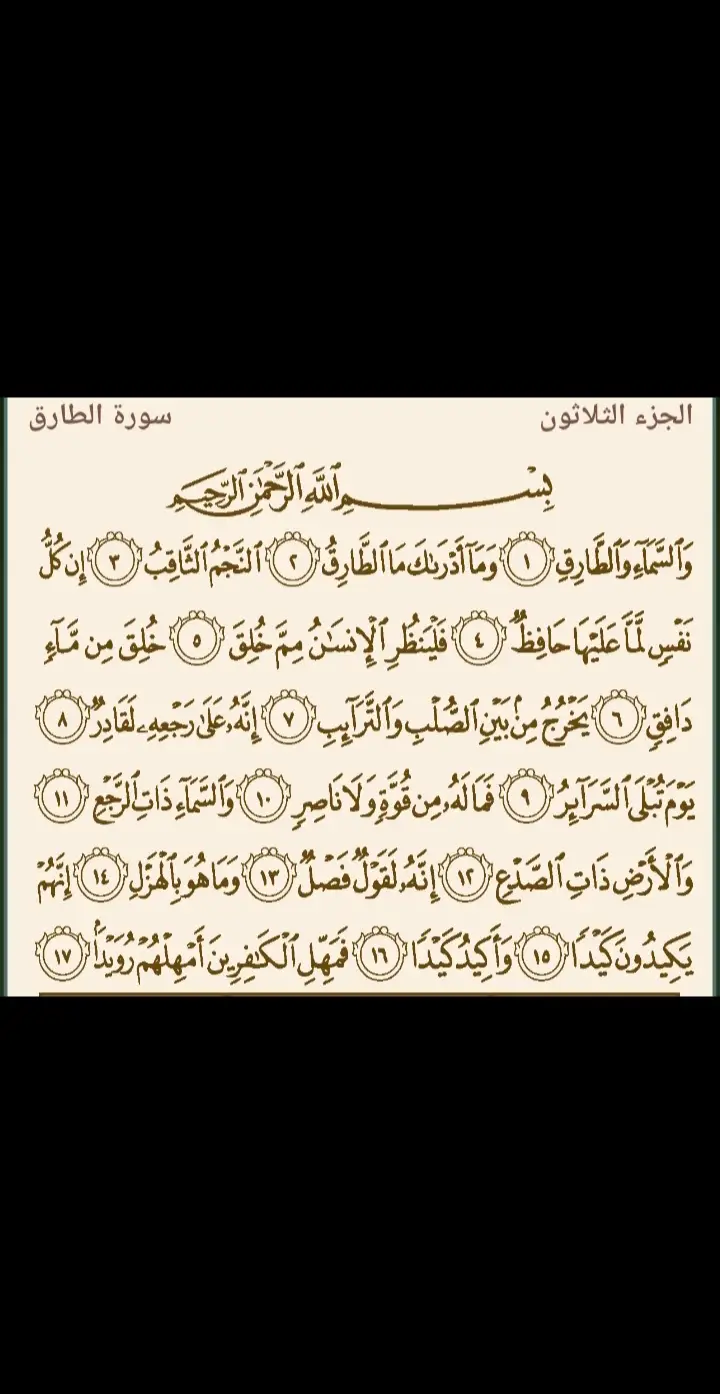 الجزء الثلاثون
سورة الطارق
بِسْمِ ٱللَّهِ ٱلرَّحْمَٰنِ ٱلرَّحِيمِ
وَٱلسَّمَآءِ وَٱلطَّارِقِ ١ وَمَآ أَدْرَىٰكَ مَا ٱلطَّارِقُ ٢ ٱلنَّجْمُ ٱلثَّاقِبُ ٣ إِن كُلُّ
نَفْسٍ لَّمَّا عَلَيْهَا حَافِظٌ ٤ فَلْيَنظُرِ ٱلْإِنسَٰنُ مِمَّ خُلِقَ ٥ خُلِقَ مِن مَّآءٍ
دَافِقٍ ٦ يَخْرُجُ مِنۢ بَيْنِ ٱلصُّلْبِ وَٱلتَّرَآئِبِ ٧ إِنَّهُۥ عَلَىٰ رَجْعِهِۦ لَقَادِرٌ ٨
يَوْمَ تُبْلَى ٱلسَّرَآئِرُ ٩ فَمَا لَهُۥ مِن قُوَّةٍ وَلَا نَاصِرٍ ١٠ وَٱلسَّمَآءِ ذَاتِ ٱلرَّجْعِ ١١
وَٱلْأَرْضِ ذَاتِ ٱلصَّدْعِ ١٢ إِنَّهُۥ لَقَوْلٌ فَصْلٌ ١٣ وَمَا هُوَ بِٱلْهَزْلِ ١٤ إِنَّهُمْ
يَكِيدُونَ كَيْدًا ١٥ وَأَكِيدُ كَيْدًا ١٦ فَمَهِّلِ ٱلْكَٰفِرِينَ أَمْهِلْهُمْ رُوَيْدًۢا ١٧